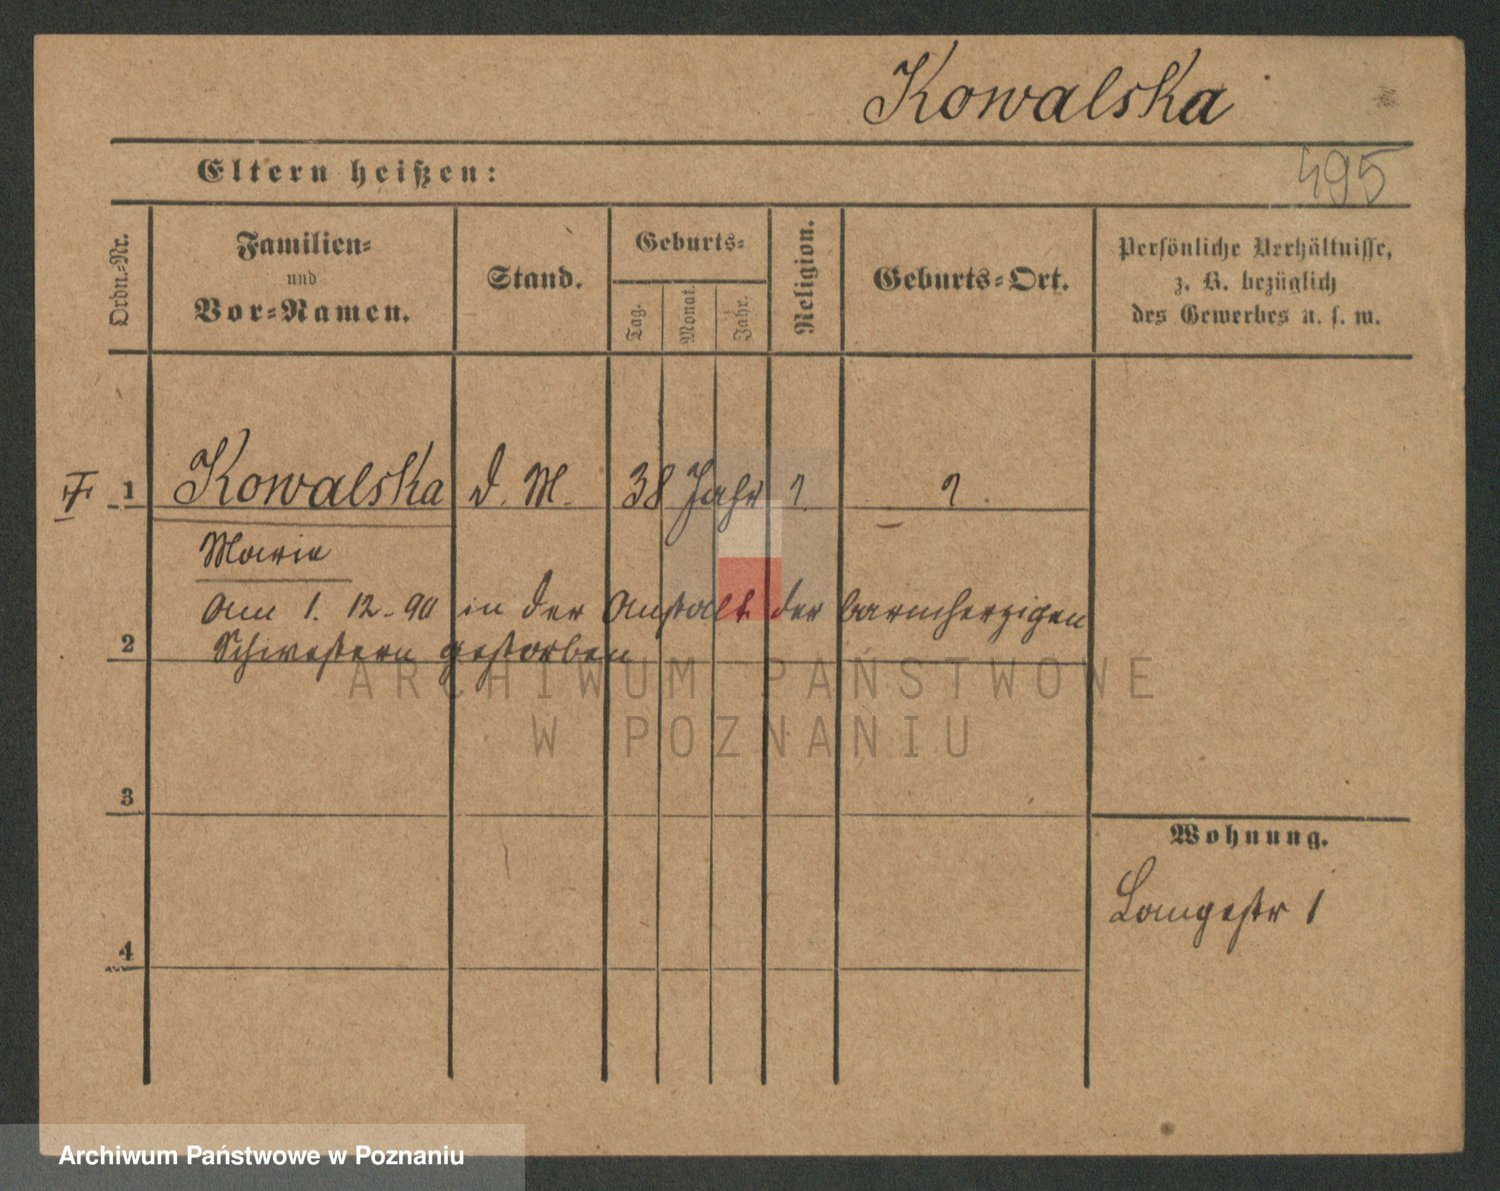 Kowalska
495
Eltern heißen:
Ordn.-Nr.
Familien-
und
Vor-Namen.
Stand.
Geburts-
Tag.
Monat.
Jahr.
Religion.
Geburts-Ort.
Persönliche Verhältnisse,
z. B. bezüglich
des Gewerbes u. s. w.
1 Kowalska d. M. 38 Jahr ? ?
Marie
Am 1. 12. 90 in der Anstalt der barmherzigen
2 Schwestern gestorben
3
4
Wohnung.
Langestr 1
ARCHIWUM PAŃSTWOWE
W POZNANIU
Archiwum Państwowe w Poznaniu